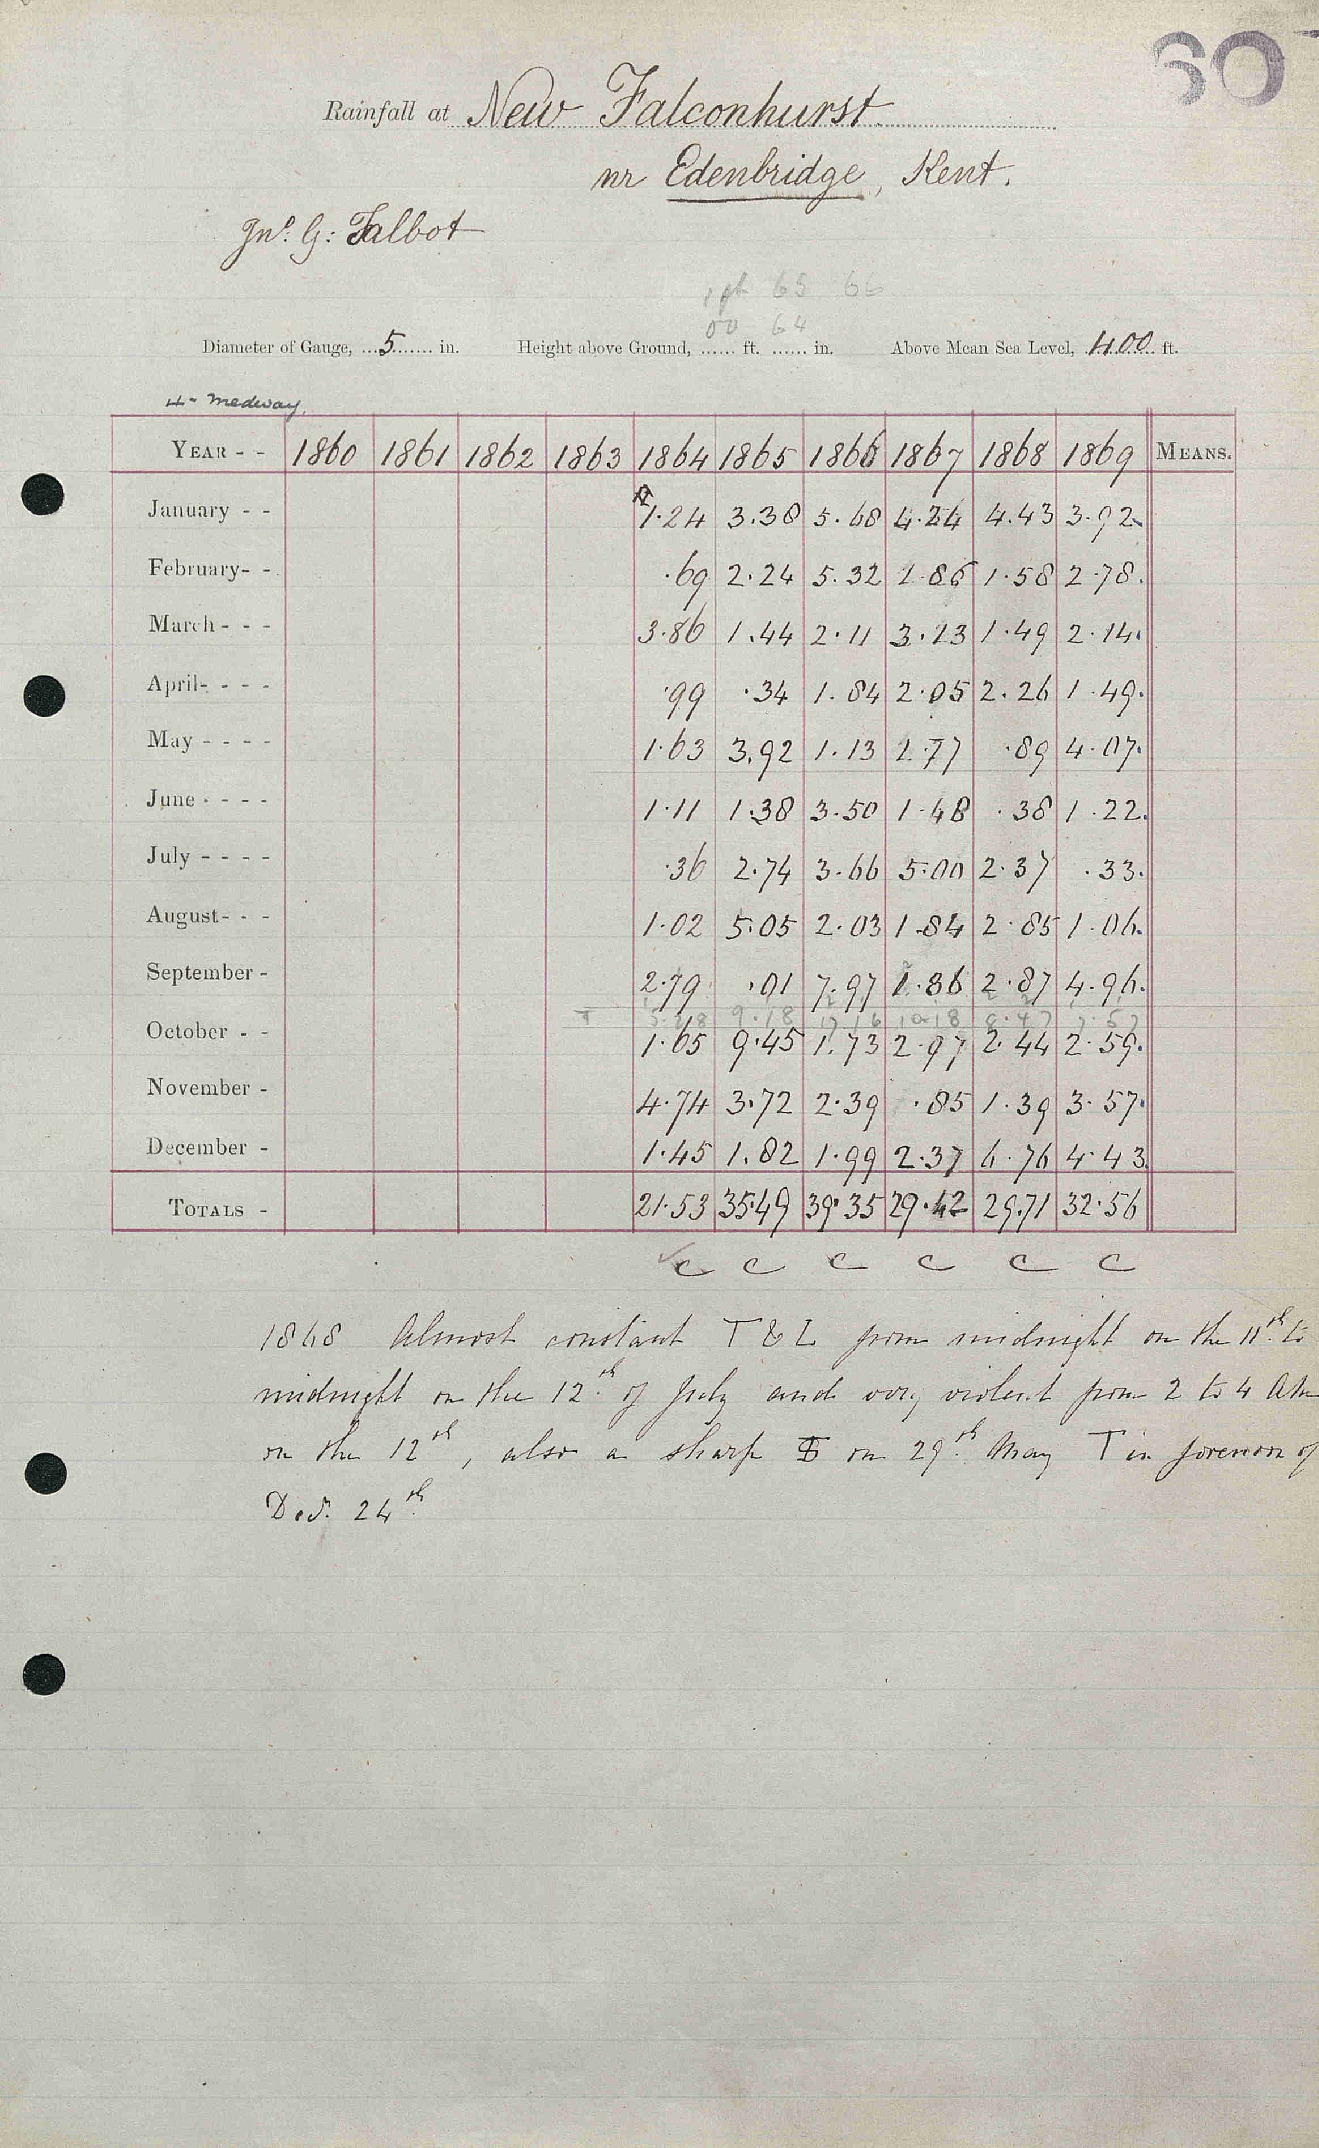 30
Rainfall at New Falconhurst
nr Edenbridge, Kent.
Jno. G: Talbot
1 ft 65 66
00 64
Diameter of Gauge, 5 in. Height above Ground, ...... ft. ...... in. Above Mean Sea Level, 400 ft.
4 - Medway
YEAR - - 1860 1861 1862 1863 1864 1865 1866 1867 1868 1869 MEANS.
January - - 1.24 3.38 5.68 4.24 4.43 3.92
February - - .69 2.24 5.32 1.86 1.58 2.78
March - - - 3.86 1.44 2.11 3.13 1.49 2.14
April - - - - .99 .34 1.84 2.05 2.26 1.49
May - - - - 1.63 3.92 1.13 1.77 .89 4.07
June - - - - 1.11 1.38 3.50 1.48 .38 1.22
July - - - - .36 2.74 3.66 5.00 2.37 .33
August - - - 1.02 5.05 2.03 1.84 2.85 1.06
September - 2.79 .01 7.97 1.86 2.87 4.96
T 5.28 9.18 17.16 10.18 8.47 7.57
October - - 1.65 9.45 1.73 2.97 2.44 2.59
November - 4.74 3.72 2.39 .85 1.39 3.57
December - 1.45 1.82 1.99 2.37 6.76 4.43
TOTALS - 21.53 35.49 39.35 29.42 29.71 32.56
c c c c c c
1868 Almost constant T & L from midnight on the 11th to
midnight on the 12th of July and very violent from 2 to 4 AM
on the 12th, also a sharp on 29th May T in forenoon of
Dec. 24th